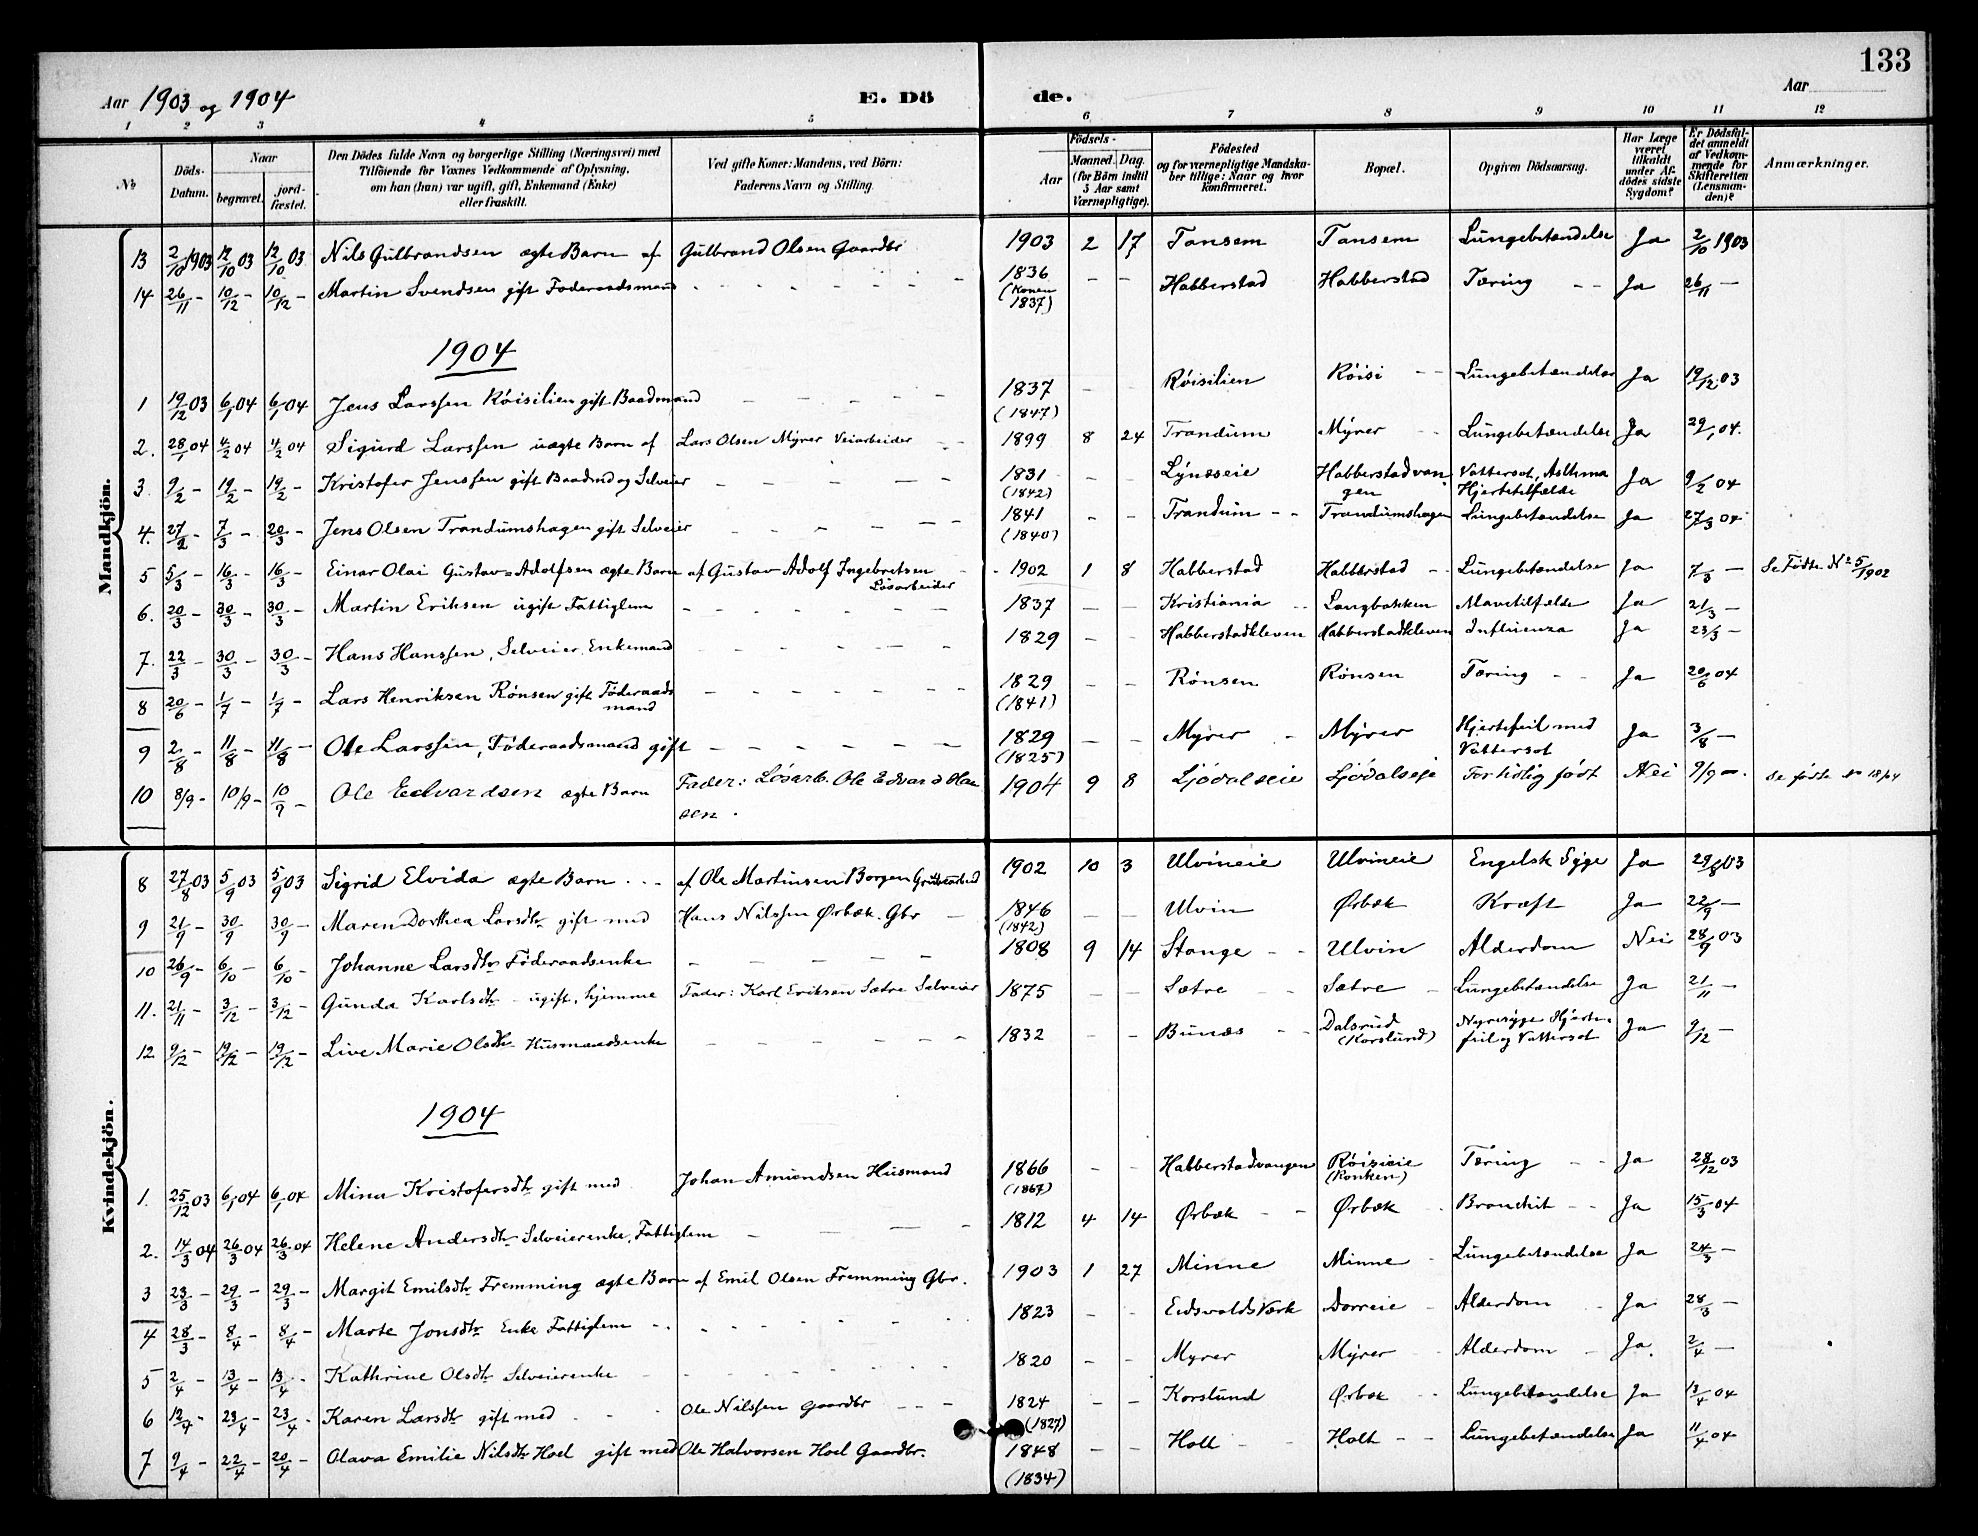 133
Aar 1903 og 1904 E. Dö de. Aar
1 2 3 4 5 6 7 8 9 10 11 12
No Döds-Datum. Naar begravet. jordfæstet. Den Dödes fulde Navn og borgerlige Stilling (Næringsvei) med Tilföiende for Voxnes Vedkommende af Oplysning, om han (hun) var ugift, gift, Enkemand (Enke) eller fraskilt. Ved gifte Koner: Mandens, ved Börn: Faderens Navn og Stilling. Födsels- Aar Maaned. Dag. (for Börn indtil 5 Aar samt Værnepligtige). Födested og for værnepligtige Mandskaber tillige: Naar og hvor konfirmeret. Bopæl. Opgiven Dödsaarsag. Har Læge været tilkaldt under Afdödes sidste Sygdom? Er Dödsfaldet anmeldt af Vedkommende for Skifteretten (Lensmanden)? Anmærkninger.
Mandkjön.
13 2/10 1903 12/10 03 12/10 03 Nils Gulbrandsen ægte Barn af Gulbrand Olsen Gaardbr 1903 2 17 Tansem Tansem Lungebetændelse Ja 2/10 1903
14 26/11 - 10/12 - 10/12 - Martin Svendsen gift Føderaadsmand - - 1836 (Konen 1837) - - Habberstad Habberstad Tæring - - Ja 26/11 -
1904
1 19/12 03 6/1 04 6/1 04 Jens Larssen Røisilien gift Baadmand - - 1837 (1847) - - Røisilien Røisi - - Lungebetændelse Ja 19/12 03
2. 28/1 04 4/2 04 4/2 04 Sigurd Larssen uægte Barn af Lars Olsen Myrer Veiarbeider - - 1899 8 24 Trandum Myrer - - Lungebetændelse Ja 29/1 04.
3. 9/2 - 19/2 - 19/2 - Kristofer Jenssen gift Baadmd og Selveier - - 1831 (1842) - - Lynæseie Habberstadvangen Vattersot, Asthma Hjertetilfælde Ja 9/2 04
4. 27/2 - 7/3 - 20/3 - Jens Olsen Trandumshagen gift Selveier - - 1841 (1840) - - Trandum - - Trandumshagen Lungebetændelse Ja 27/3 04
5 5/3 - 16/3 - 16/3 - Einar Olai Gustav-Adolfsen ægte Barn af Gustav Adolf Ingebretsen Løsarbeider 1902 1 8 Habberstad Habberstad - Lungebetændelse Ja 7/3 - Se Fødte No 5/1902
6. 20/3 - 30/3 - 30/3 - Martin Eriksen ugift Fattiglem - - 1837 - - Kristiania - - Langbakken Mavetilfælde Ja 21/3 -
7. 22/3 - 30/3 - 30/3 - Hans Hanssen, Selveier, Enkemand - - 1829 - - Habberstadkleven Habberstadkleven Influenza Ja 23/3 -
8 20/6 - 1/7 - 1/7 - Lars Henriksen Rønsen gift Føderaadsmand - - 1829 (1841) - - Rønsen Rønsen Tæring - - Ja 20/6 04
9 2/8 - 11/8 - 11/8 - Ole Larssen, Føderaadsmand gift - - 1829 (1825) - - Myrer - Myrer Hjertefeil med Vattersot Ja 3/8 -
10 8/9 - 10/9 - 10/9 - Ole Edvardsen ægte Barn Fader: Løsarb. Ole Edvard Hansen. 1904 9 8 Ljødalseie Ljødalseie For tidlig født Nei 9/9 - Se fødte no 18/04
Kvindekjön.
8 27/8 03 5/9 03 5/9 03 Sigrid Elvida ægte Barn . . - af Ole Martinsen Borgen Grubearbed 1902 10 3 Ulvineie Ulvineie Engelsk Syge Ja 29/8 03
9 21/9 - 30/9 30/9 - Maren Dorthea Larsdtr gift med Hans Nilssen Ørbæk. Gbr - 1846 (1842) - - Ulvin Ørbæk Kræft Ja 22/9 -
10 26/9 - 6/10 - 6/10 - Johanne Larsdtr Føderaadsenke - - 1808 9 14 Stange - - Ulvin Alderdom Nei 28/9 03
11. 21/11 - 3/12 - 3/12 - Gunda Karlsdtr - ugift, hjemme Fader: Karl Eriksen Sætre Selveier 1875 - - Sætre - Sætre - Lungebetændelse Ja 21/11 -
12 9/12 - 19/12 - 19/12 - Live Marie Olsdtr Husmandsenke - - 1832 - - Bunæs - - Dalsrud (Korslund) Nyresyge Hjertefeil og Vattersot Ja 9/12 -
1904
1. 25/12 03 6/1 04 6/1 04 Mina Kristofersdtr gift med Johan Amundsen Husmand 1866 (1867) - - Habberstadvangen Røisieie (Ronken) Tæring - - Ja 28/12 03
2. 14/3 04 26/3 04 26/3 04 Helene Andersdtr Selveierenke, Fattiglem - - 1812 4 14 Ørbæk - - Ørbæk - Bronchit - - Ja 15/3 04
3 23/3 - 29/3 - 29/3 - Margit Emilsdtr Fremming ægte Barn af Emil Olsen Fremming Gbr. 1903 1 27 Minne Minne - Lungebetændelse Ja 24/3 -
4 28/3 - 8/4 - 8/4 - Marte Jonsdtr Enke Fattiglem - - 1823 - - Eidsvolds Værk Dorreie - Alderdom - Ja 28/3 -
5 2/4 - 13/4 - 13/4 - Kathrine Olsdtr Selveierenke - - 1820 - - Myrer Myrer - Alderdom - Ja. 2/4 -
6 12/4 - 23/4 - 23/4 - Karen Larsdtr gift med - - Ole Nilssen Gaardbr - - 1824 (1827) - - Korslund Ørbæk - - Lungebetændelse Ja 13/4 04
7 9/4 - 22/4 - 20/4 - Olava Emilie Nilsdtr Hoel gift med Ole Halvorsen Hoel Gaardbr. 1848 (1834) - - Holt - - Holt - - Lungebetændelse Ja 11/4 04